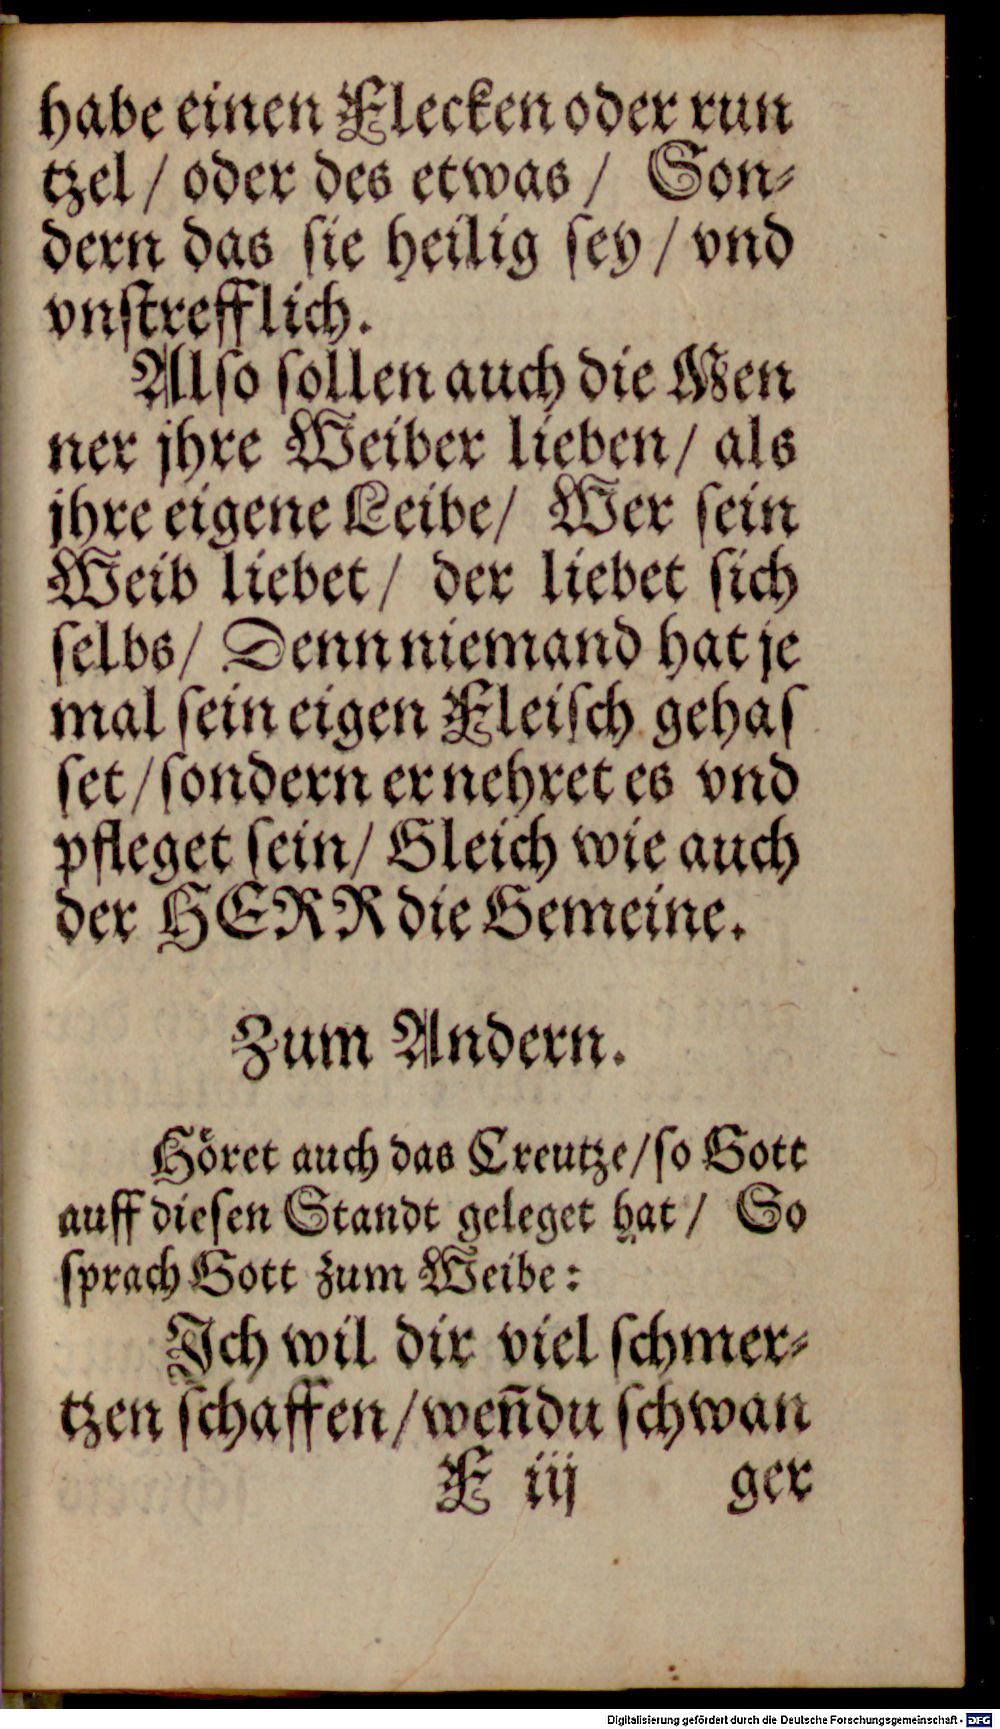 habe einen Flecken oder run
tzel / oder des etwas / Son⸗
dern das sie heilig sey / vnd
vnstrefflich.
Also sollen auch die Men
ner jhre Weiber lieben / als
jhre eigene Leibe / Wer sein
Weib liebet / der liebet sich
selbs / Denn niemand hat je
mal sein eigen Fleisch gehas
set / sondern er nehret es vnd
pfleget sein / Gleich wie auch
der HERR die Gemeine.
Zum Andern.
Hoͤret auch das Creutze / so Gott
auff diesen Standt geleget hat / So
sprach Gott zum Weibe:
Ich wil dir viel schmer⸗
tzen schaffen / weñ du schwan
F iij ger
Digitalisierung gefördert durch die Deutsche Forschungsgemeinschaft - DFG